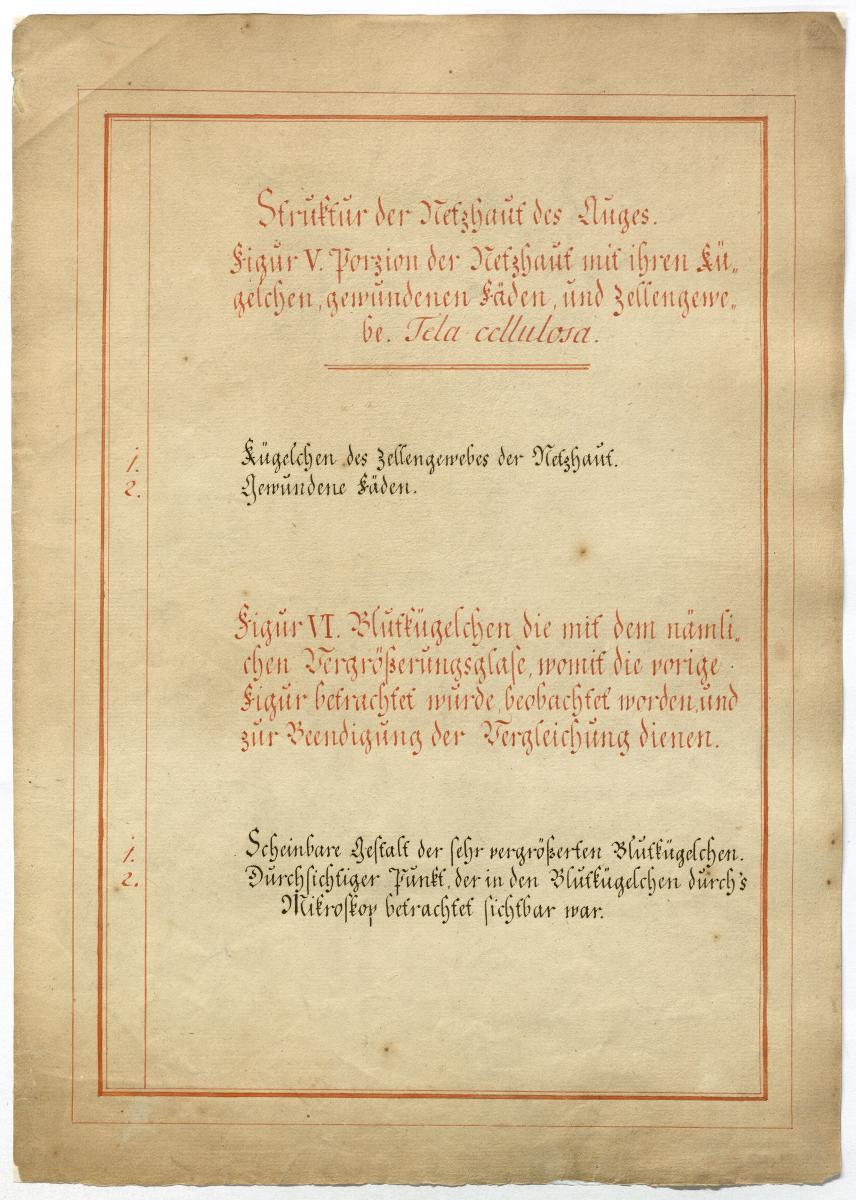 Struktur der Netzhaut des Auges.
Figur V. Porzion der Netzhaut mit ihren Kü„
gelchen, gewundenen Fäden, und Zellengewe„
be. Tela cellulosa.
1. Kügelchen des Zellengewebes der Netzhaut.
2. Gewundene Fäden.
Figur VI. Blutkügelchen die mit dem nämli„
chen Vergrößerungsglase, womit die vorige
Figur betrachtet wurde, beobachtet worden, und
zur Beendigung der Vergleichung dienen.
1. Scheinbare Gestalt der sehr vergrößerten Blutkügelchen.
2. Durchsichtiger Punkt, der in den Blutkügelchen durch's
Mikroskop betrachtet sichtbar war.